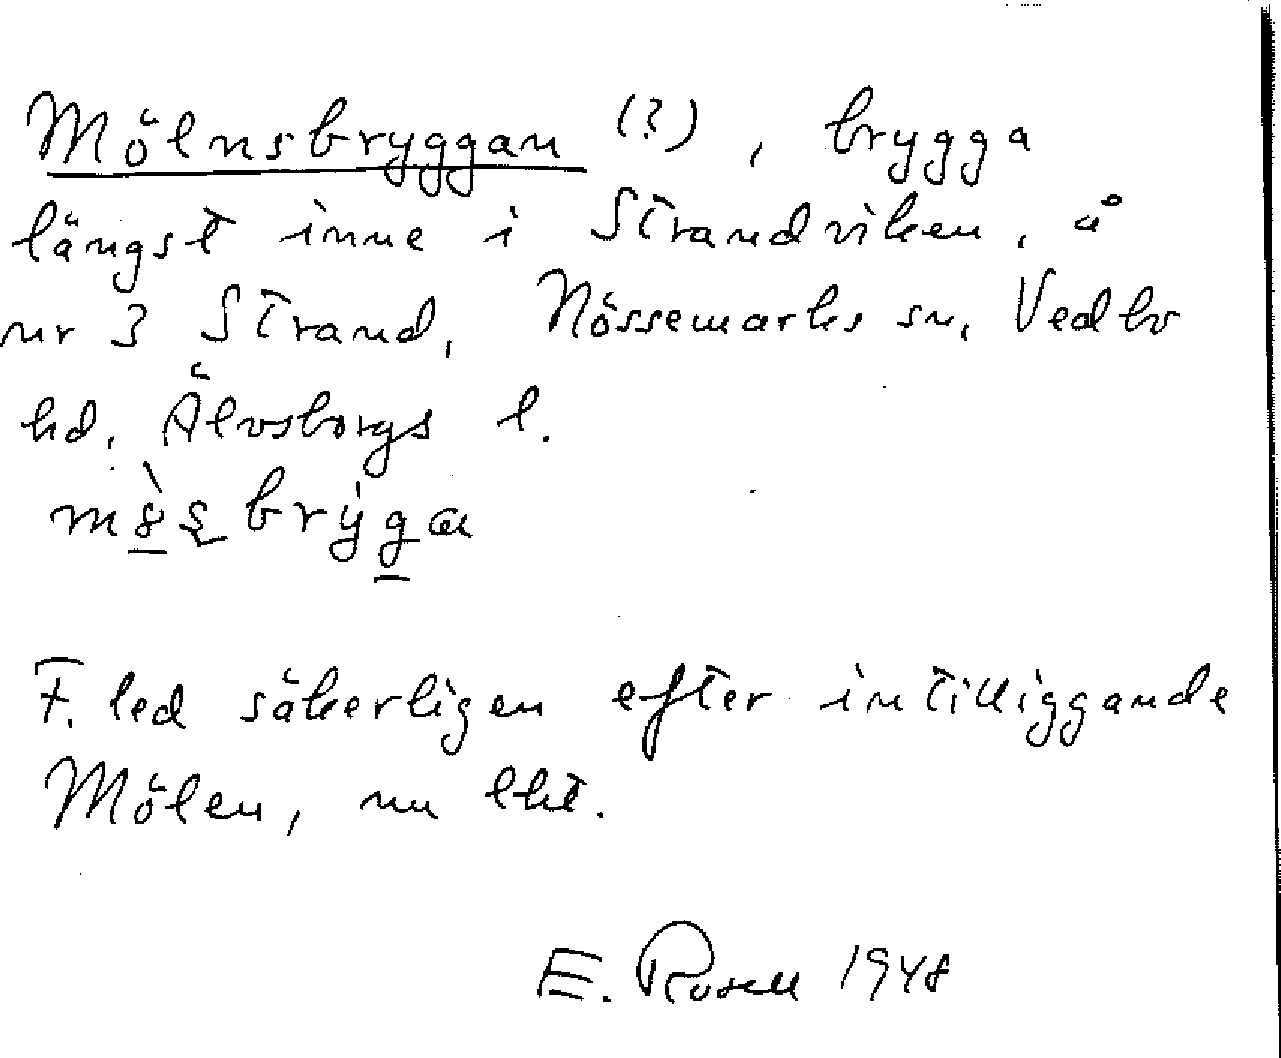 Mölnsbryggan (?), brygga
längst inne i Strandviken, å
nr 3 Strand, Nössemarks sn, Vedbo
hd, Älvsborgs l.
F. led säkerligen efter intilliggande
Mölen, nu lht.
E. Rosell 1948